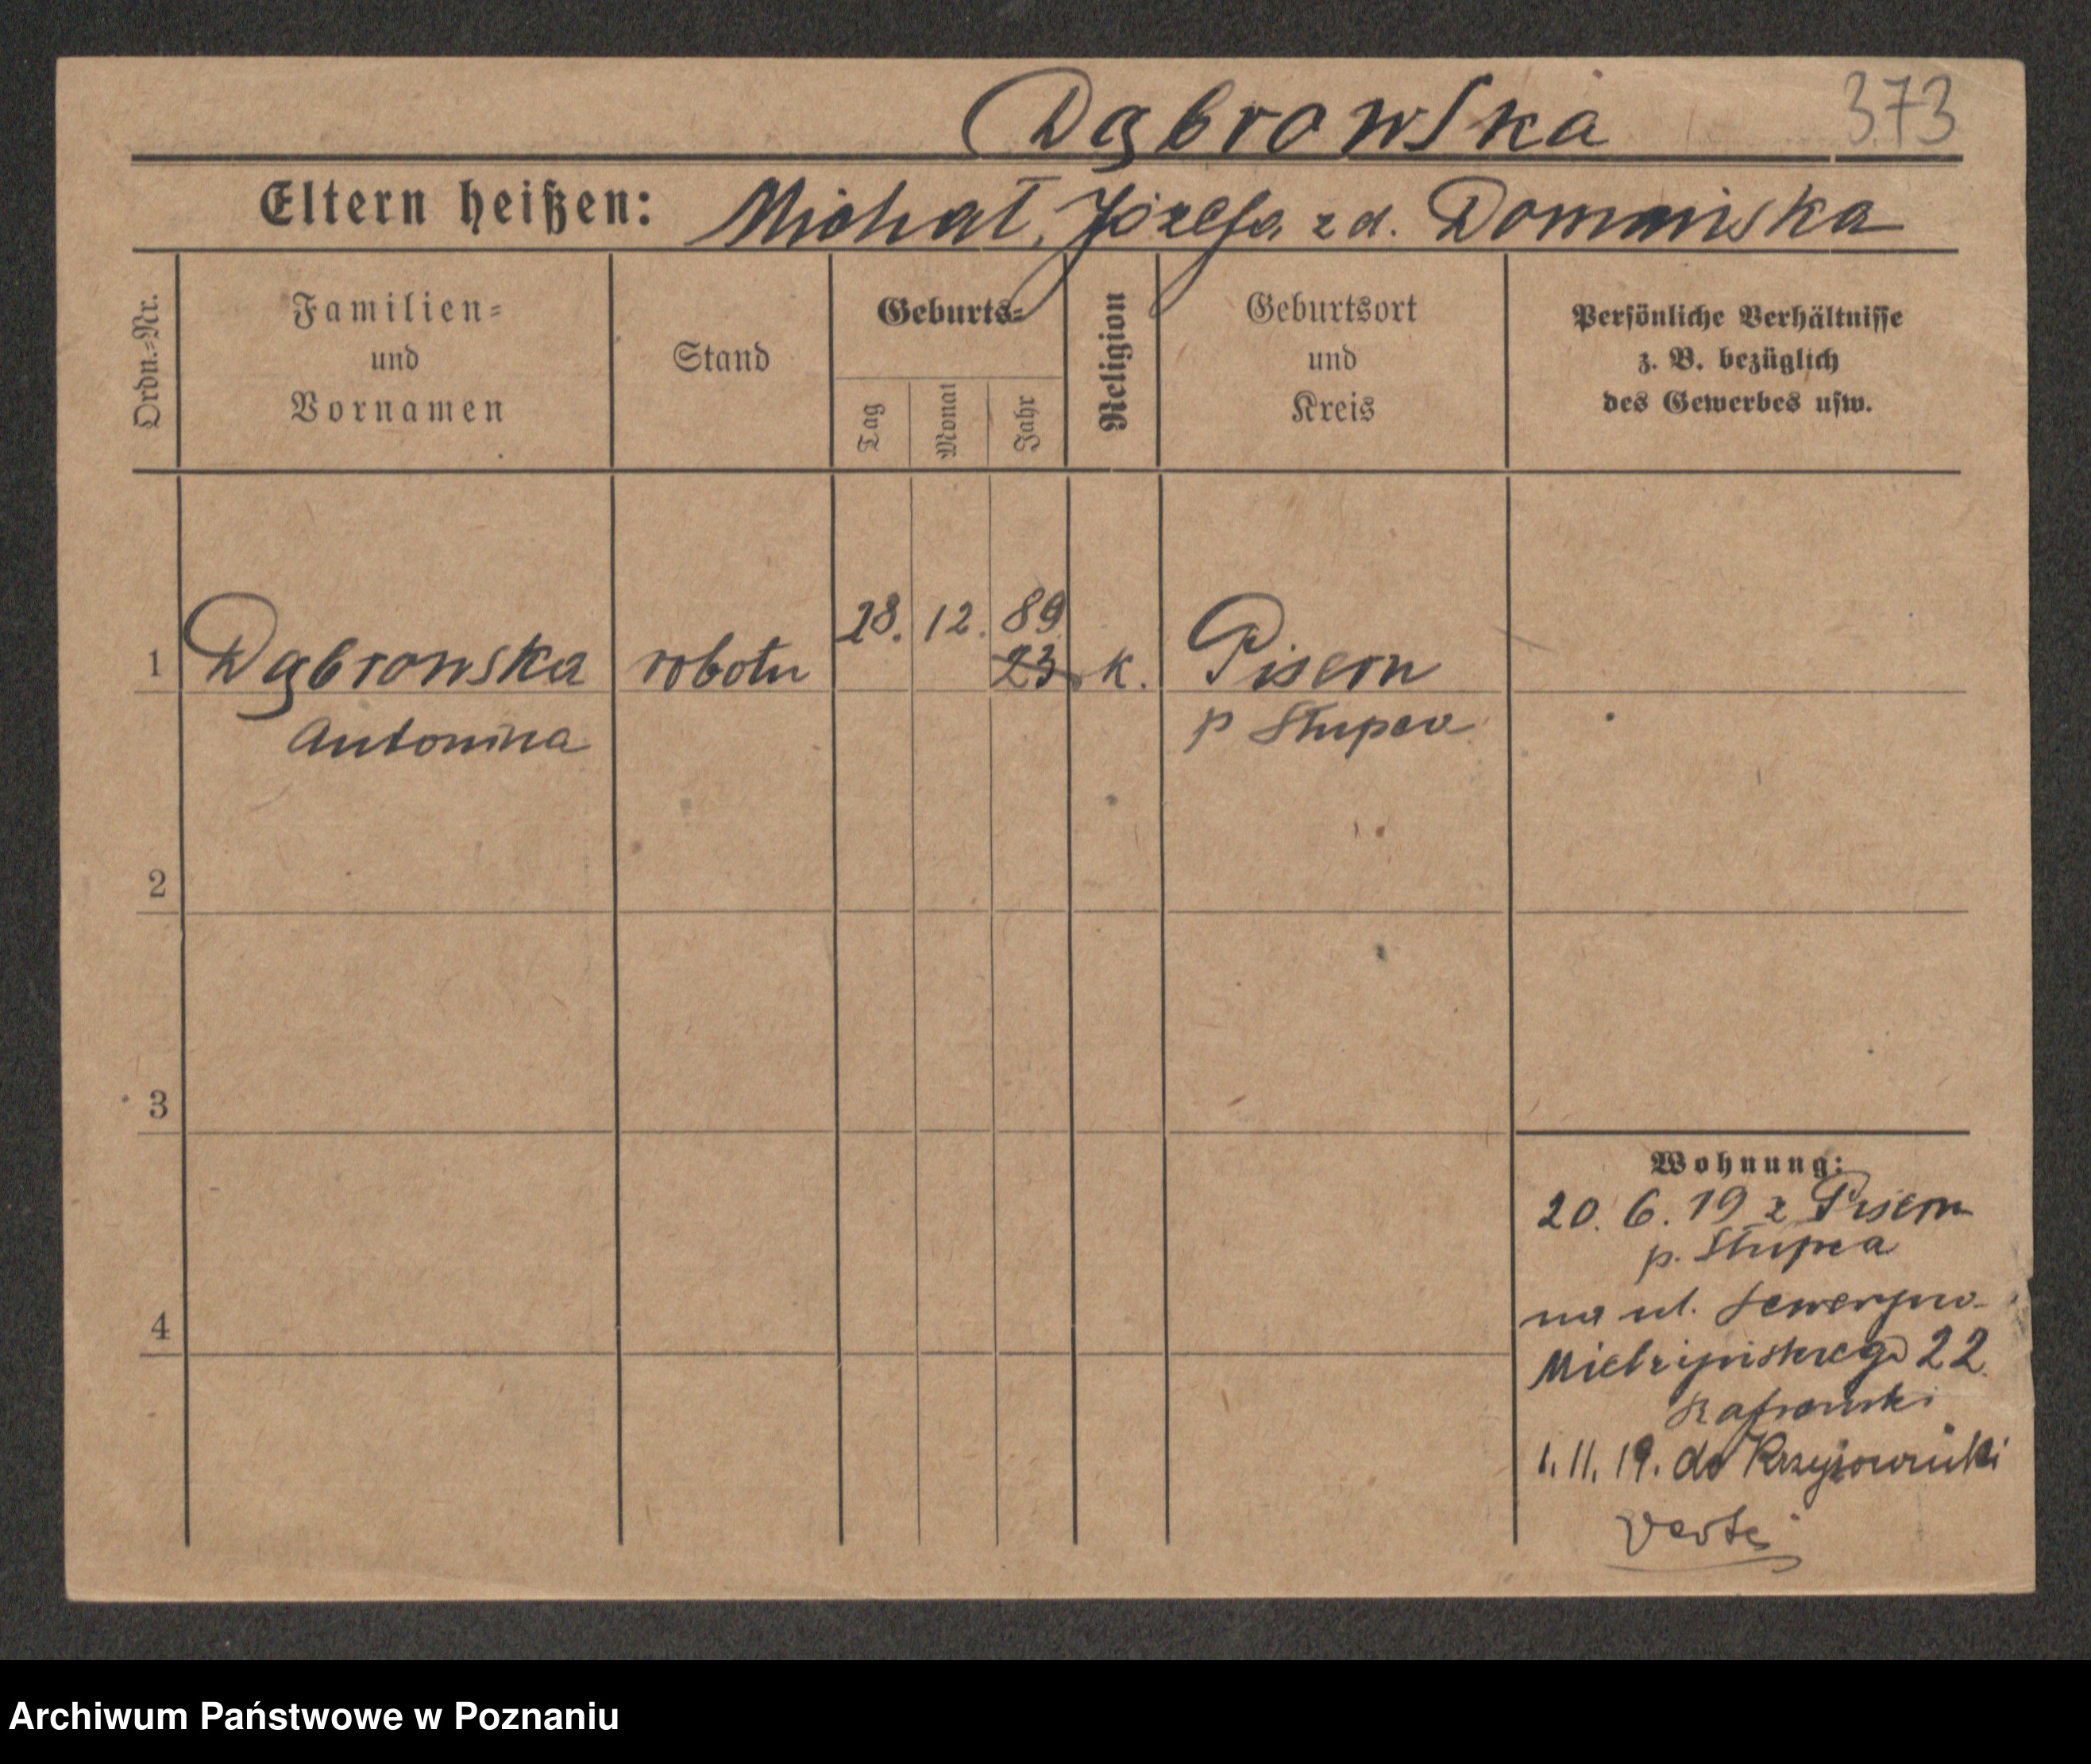 Dąbrowska 373
Eltern heißen: Michał, Józefa z d. Domańska
Ordn.-Nr.
Familien-
und
Vornamen
Stand
Geburts-
Tag
Monat
Jahr
Religion
Geburtsort
und
Kreis
Persönliche Verhältnisse
z. B. bezüglich
des Gewerbes usw.
28. 12. 89
1 Dąbrowska robotn 23 k. Piscem
Antonina p Słupca
2
3
4
Wohnung:
20. 6. 19 z
p. Słupca
na ul. Seweryna
Mielżyńskiego 22
1. 11. 19. do Krzyżowniki
Verte
Archiwum Państwowe w Poznaniu